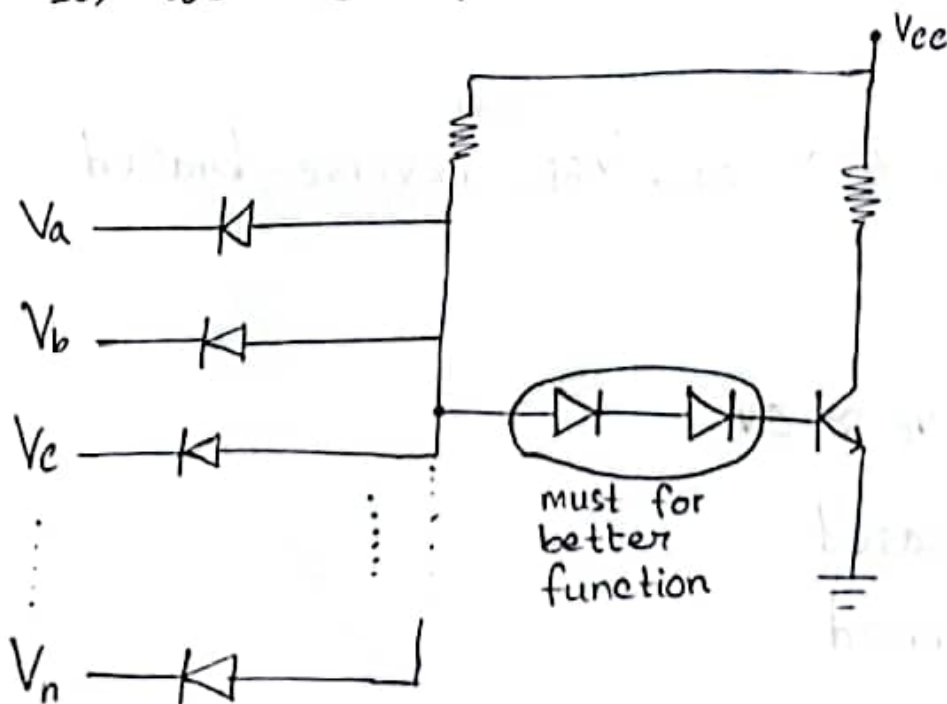 Vcc
Va
Vb
Vc
must for
better
function
Vn